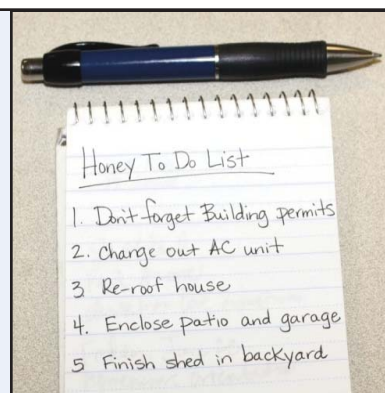 Honey To Do List
1. Don't forget Building permits
2. Change out AC unit
3 Re-roof house
4. Enclose patio and garage
5 Finish shed in backyard